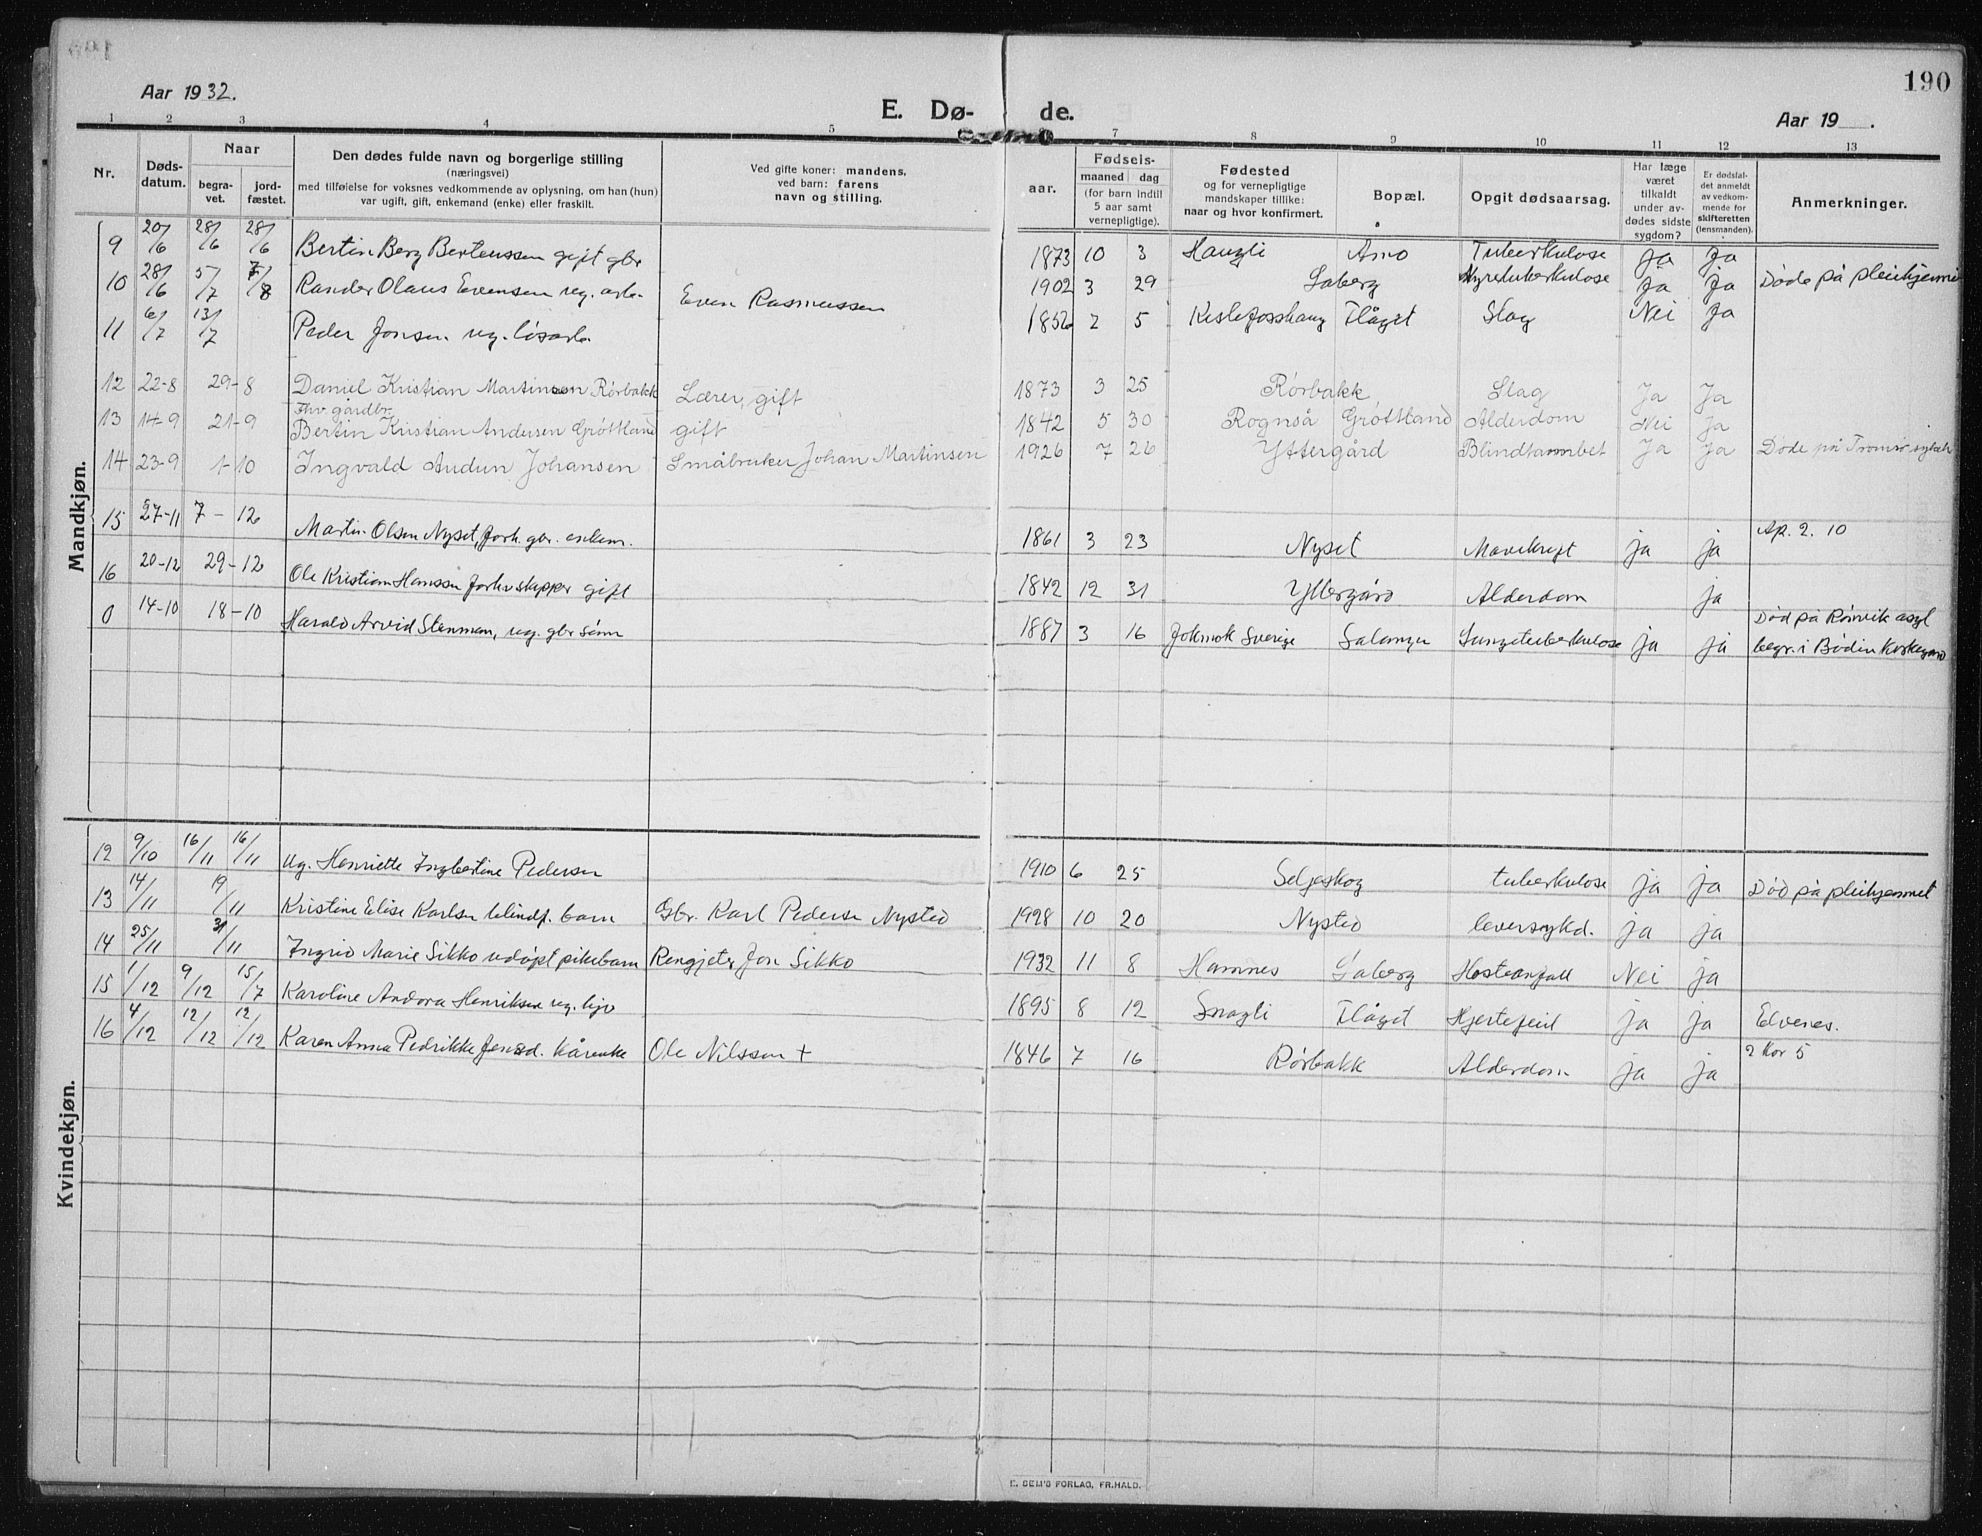 190
Aar 1932.
E. Dø- de.
Aar 19 .
1 2 3 4 5 7 8 9 10 11 12 13
Nr.
Døds-
datum.
Naar
begra-
vet.
jord-
fæstet.
Den dødes fulde navn og borgerlige stilling
(næringsvei)
med tilføielse for voksnes vedkommende av oplysning, om han (hun)
var ugift, gift, enkemand (enke) eller fraskilt.
Ved gifte koner: mandens,
ved barn: farens
navn og stilling.
Fødsels-
aar.
maaned dag
(for barn indtil
5 aar samt
vernepligtige).
Fødested
og for vernepligtige
mandskaper tillike:
naar og hvor konfirmert.
Bopæl.
Opgit dødsaarsag.
Har læge
været
tilkaldt
under av-
dødes sidste
sygdom?
Er dødsfal-
det anmeldt
av vedkom-
mende for
skifteretten
(lensmanden).
Anmerkninger.
Mandkjøn.
9 20/6 28/6 28/6 Bertin Berg Bertenssen gift gbr 1873 10 3 Hangli Amo Tuberkulose Ja Ja
10 28/6 5/7 7/8 Rander Olaus Evensen ug. arb. Even Rasmussen 1902 3 29 Saberg Nyretuberkulose Ja Ja Døde på pleiehjemmet
11 6/7 13/7 Peder Jonsen ug. løsarb. 1856 2 5 Flåget Slag Nei Ja
12 22-8 29-8 Daniel Kristian Martinsen Rørbakk Lærer, gift 1873 3 25 Rørbakk Slag Ja Ja
Fhv gårdbr.
13 14-9 21-9 Bertin Kristian Andersen Grøttland gift 1842 5 30 Rognså Grøttland Alderdom Nei Ja
14 23-9 1-10 Ingvald Audun Johansen Småbruker Johan Martinsen 1926 7 26 Yttergård Blindtarmbet Ja Ja Døde på Tromsø sykeh
15 27-11 7-12 Martin Olsen Nyset, forh. gbr. enkem. 1861 3 23 Nyset Mavekreft ja ja Ap. 2. 10
16 20-12 29-12 Ole Kristian Hanssen forhv skipper gift 1842 12 31 Yttergård Alderdom ja
0 14-10 18-10 Harald Arvid Stenman, ug. gbr sønn 1887 3 16 Jokmok Sverige Salangen Lungetuberkulose ja ja Død på Rønvik asyl
begr. i Bodin Kirkegård
Kvindekjøn.
12 9/10 16/11 16/11 Ug. Henriette Ingbertine Pedersen 1910 6 25 Seljeskog tuberkulose ja ja Død på pleiehjemmet
13 14/11 19/11 Kristine Elise Karlsen blindf. barn Gbr. Karl Pedersen Nysted 1928 10 20 Nysted leversykd. ja ja
14 25/11 31/11 Ingrid Marie Sikko udøpt pikebarn Rengjeter Jon Sikko 1932 11 8 Hamnes Saberg Hosteanfall Nei ja
15 1/12 9/12 15/7 Karoline Andora Henriksen ug. 1895 8 12 Snogli Flåget Hjertefeil ja ja Elvenes.
16 4/12 12/12 12/12 Karen Anna Pedrikke Jensd. kårenke Ole Nilssen + 1846 7 16 Rørbakk Alderdom ja ja 2 Kor 5
E. SEM'S FORLAG, FR.HALD.